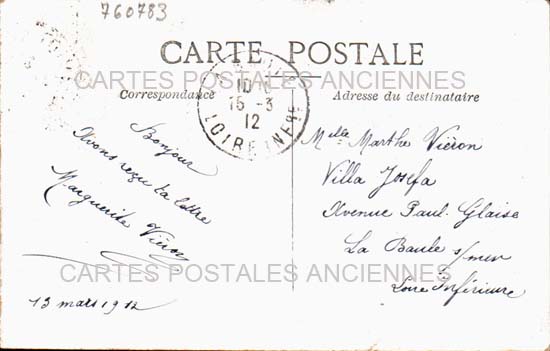 760783
CARTE POSTALE
CARTES POSTALES ANCIENNES
Correspondance
Adresse du destinataire
15 -3
12
LOIRE INFRE
Bonjour
Avons reçu ta lettre
Marguerite Viéron
13 mars 1912
Melle Marthe Viéron
Villa Josefa
Avenue Paul. Glaise
La Baule s/mer
Loire Inférieure
CARTES POSTALES ANCIENNES